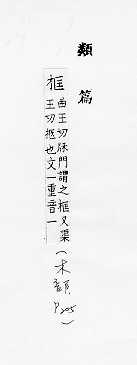 類篇
框
曲王切牀門謂之框又渠
王切柩也文一重音一
(木部
P.205)